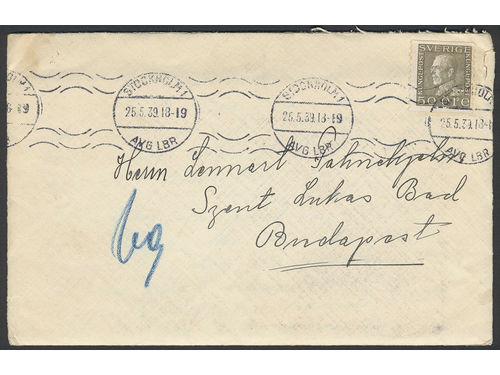 SVERIGE
50 ÖRE
STOCKHOLM 1
25.5.39.18-19
AVG LBR
STOCKHOLM 1
25.5.39.18-19
AVG LBR
25.5.39.18-19
AVG LBR
Herrn Lennart
Szent Lukas Bad
Budapest